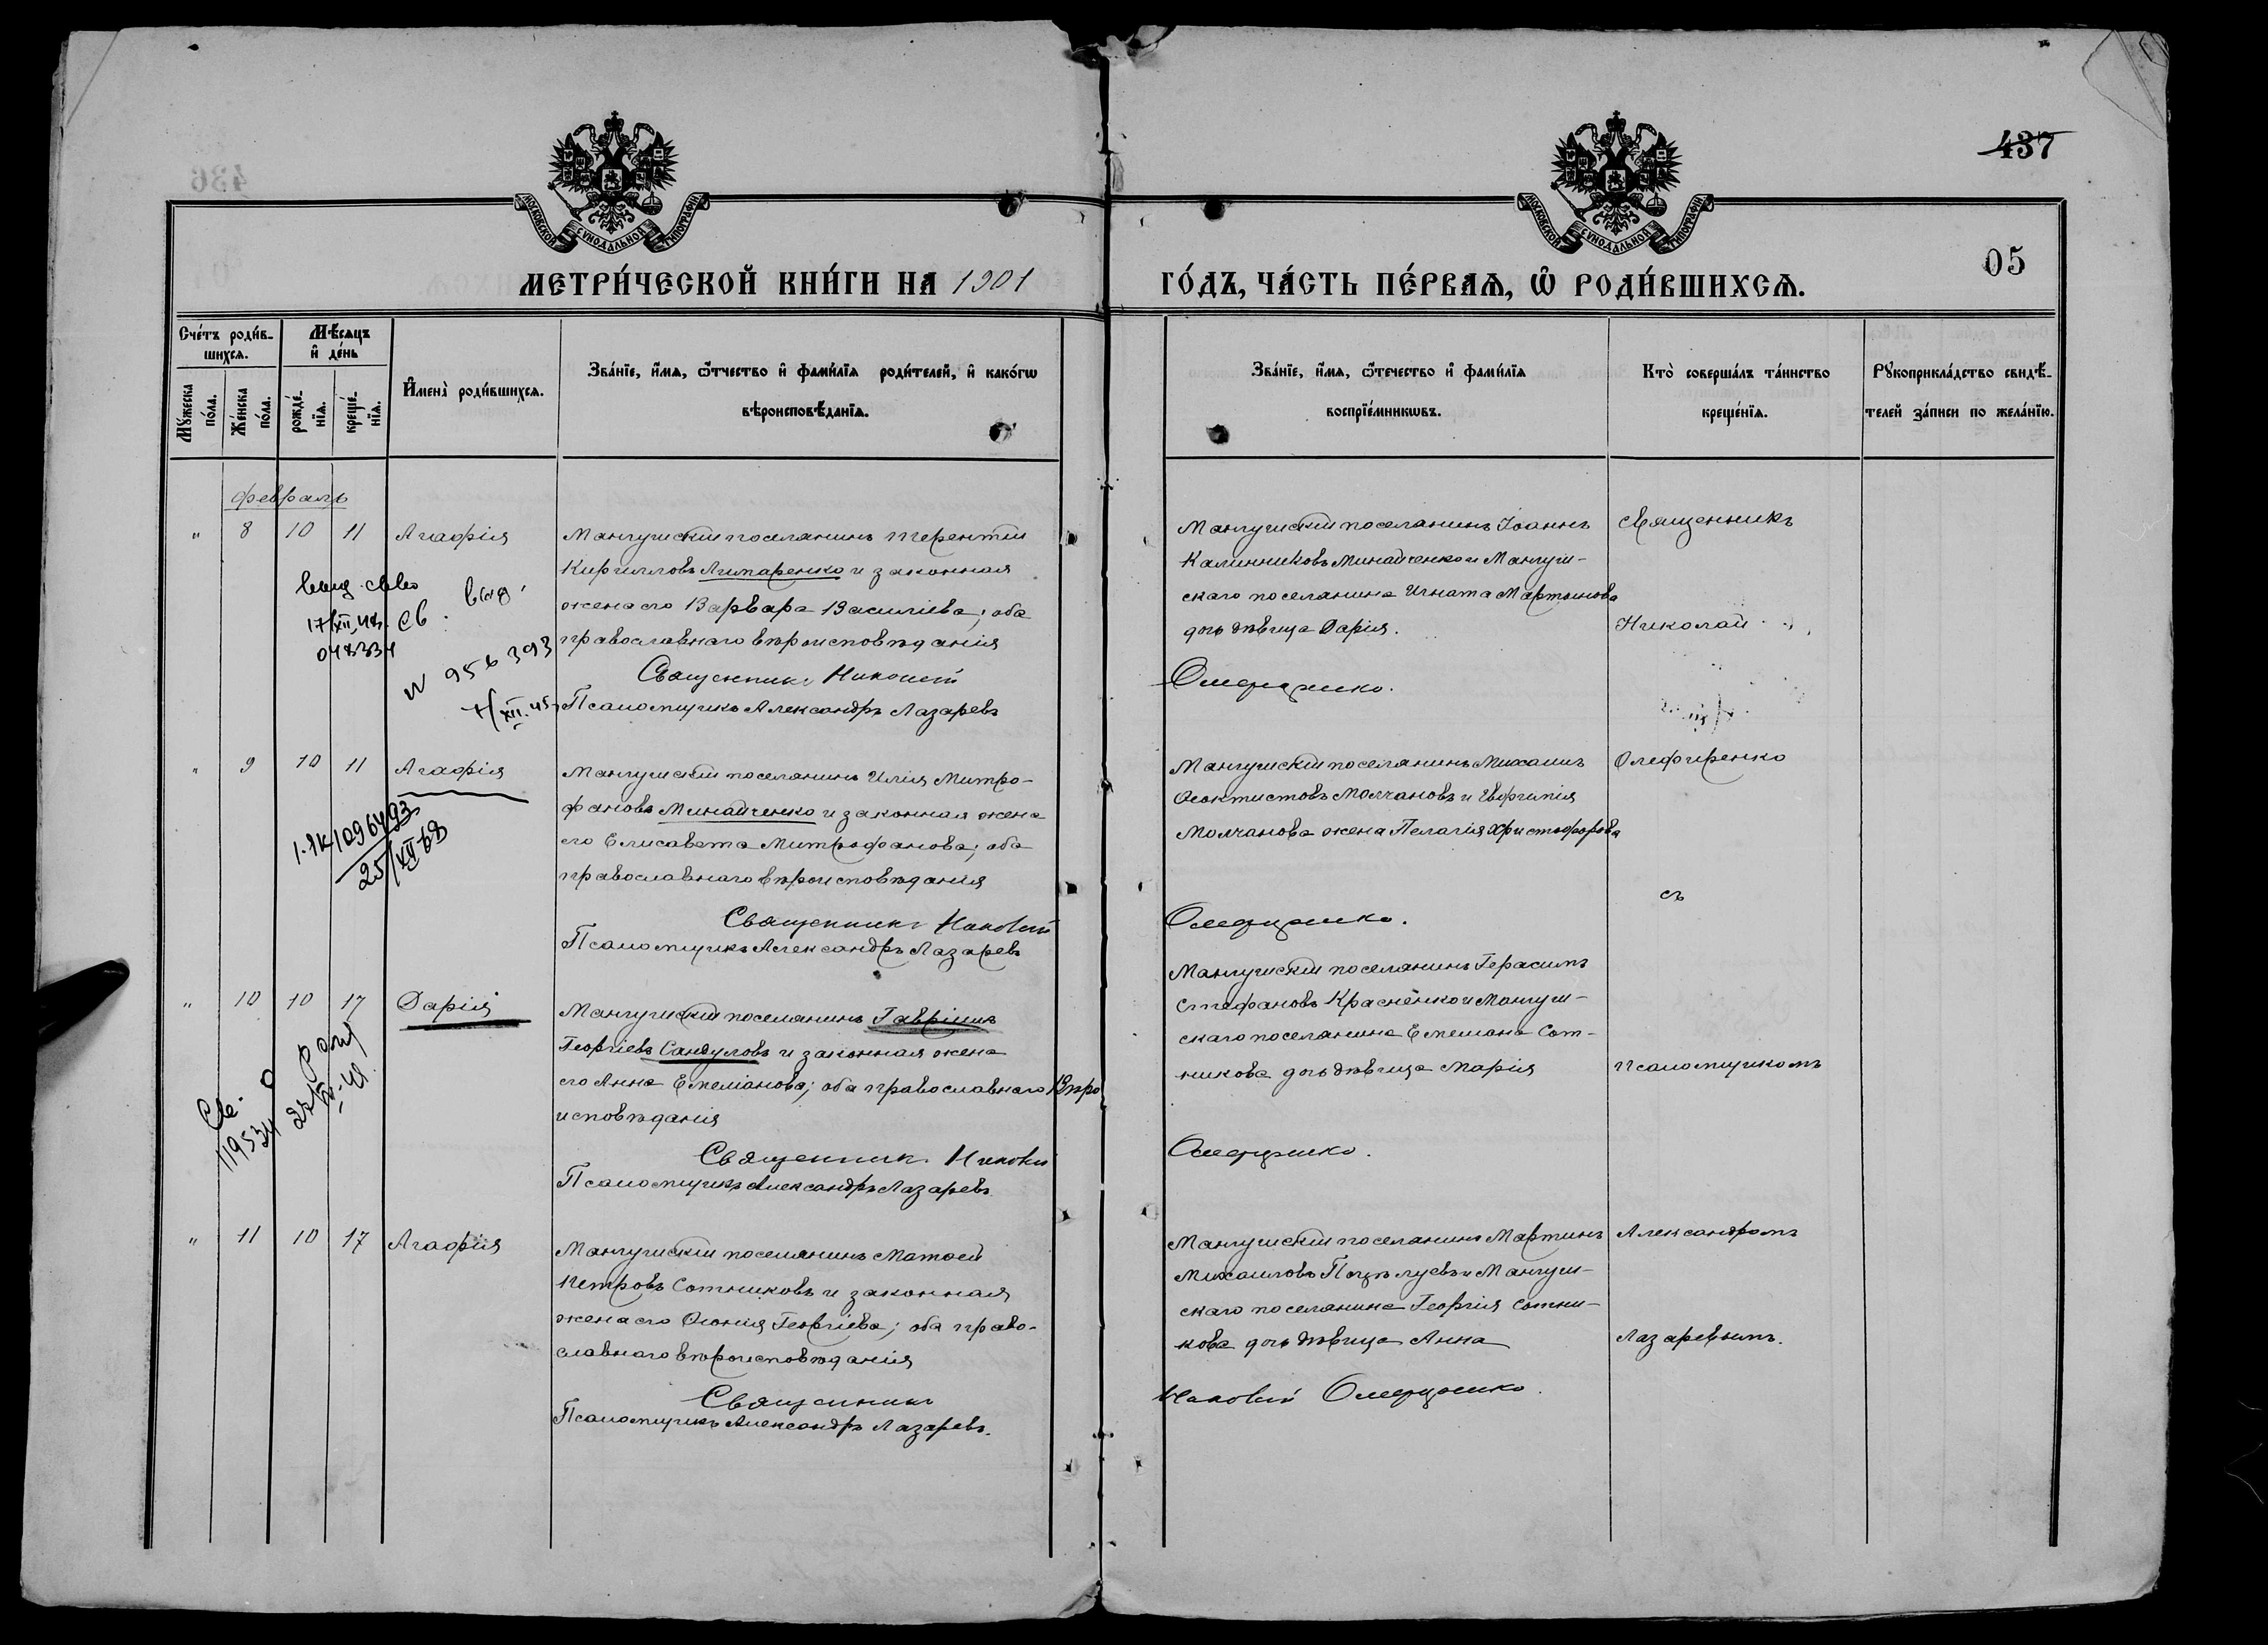 436
437
05
МОСКОВСКОЙ СѴНОДАЛЬНОЙ ТИПОГРАФІИ
МОСКОВСКОЙ СѴНОДАЛЬНОЙ ТИПОГРАФІИ
МЕТРИ́ЧЕСКОЙ КНИ́ГИ НА 1901
ГО́ДЪ, ЧА́СТЬ ПЕ́РВАѦ, Ѡ РОДИ́ВШИХСѦ.
Сче́тъ роди́в-
шихсѧ.
Мѣ́сѧцъ
и҆ де́нь
Мꙋ́жеска по́ла.
Же́нска по́ла.
рожде́-нїѧ.
креще́-нїѧ.
И҆мена̀ роди́вшихсѧ.
Зва́нїе, и҆́мѧ, ѻ҆́тчество и҆ фами́лїѧ роди́телей, и҆ како́гѡ
вѣроисповѣ́данїѧ.
Зва́нїе, и҆́мѧ, ѻ҆те́чество и҆ фами́лїѧ
воспрїе́мникѡвъ.
Кто̀ соверша́лъ та́инство
креще́нїѧ.
Рꙋкоприкла́дство свидѣ́-
телей за́писи по жела́нїю.
февраль
" 8 10 11 Агафія
Мангушскій поселянинъ Терентій
Кирилловъ Лимаренко и законная
жена его Варвара Василіева; оба
православнаго вѣроисповѣданія
Священникъ Николай
Псаломщикъ Александръ Лазаревъ
Мангушскій поселянинъ Іоаннъ
Калинниковъ Минайченко и Мангуш-
скаго поселянина Игната Мартынова
дочь дѣвица Дарія.
Олефиренко.
Священникъ
Николай
Св.
N 956393
" 9 10 11 Агафія
1096493
25/XII-68
Мангушскій поселянинъ Илія Митро-
фановъ Минайченко и законная жена
его Елисавета Митрофанова; оба
православнаго вѣроисповѣданія
Священникъ Николай
Псаломщикъ Александръ Лазаревъ
Мангушскій поселянинъ Михаилъ
Ѳеоктистовъ Молчановъ и Евфимія
Молчанова жена Пелагія Христофорова
Олефиренко.
Олефиренко
съ
" 10 10 17 Дарія
Св.
Мангушскій поселянинъ Гавріилъ
Георгіевъ Сандуловъ и законная жена
его Анна Емеліанова; оба православнаго вѣро
исповѣданія
Священникъ Николай
Псаломщикъ Александръ Лазаревъ
Мангушскій поселянинъ Герасимъ
Стефановъ Красненко и Мангуш-
скаго поселянина Емеліана Сот-
никова дочь дѣвица Марія
Олефиренко.
псаломщикомъ
" 11 10 17 Агафія
Мангушскій поселянинъ Матѳей
Петровъ Сотниковъ и законная
жена его Ѳеонія Георгіева; оба право-
славнаго вѣроисповѣданія
Священникъ
Псаломщикъ Александръ Лазаревъ.
Мангушскій поселянинъ Мартинъ
Михаиловъ Поцѣлуевъ и Мангуш-
скаго поселянина Георгія Сотни-
кова дочь дѣвица Анна
Николай Олефиренко.
Александромъ
Лазаревымъ.